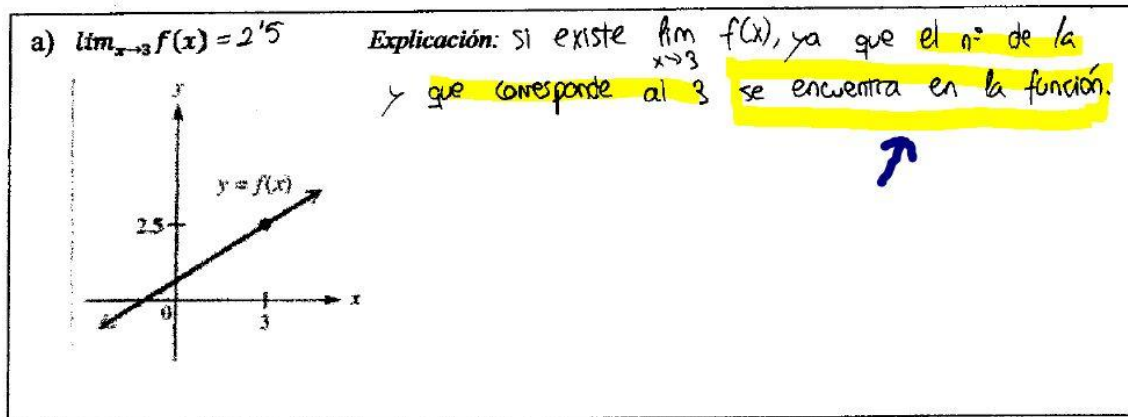 a) lim_{x→3} f(x) = 2'5 Explicación: Si existe lim f(x), ya que el nº de la
x→3
y que corresponde al 3 se encuentra en la función.
y
y = f(x)
2.5
x
0
3